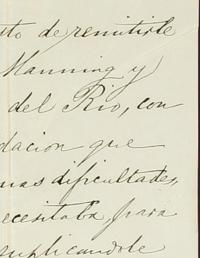 tto de remitirle
Manning y
del Rio, con
dacion que
nas dificultades,
ecesitaba para
suplicandole